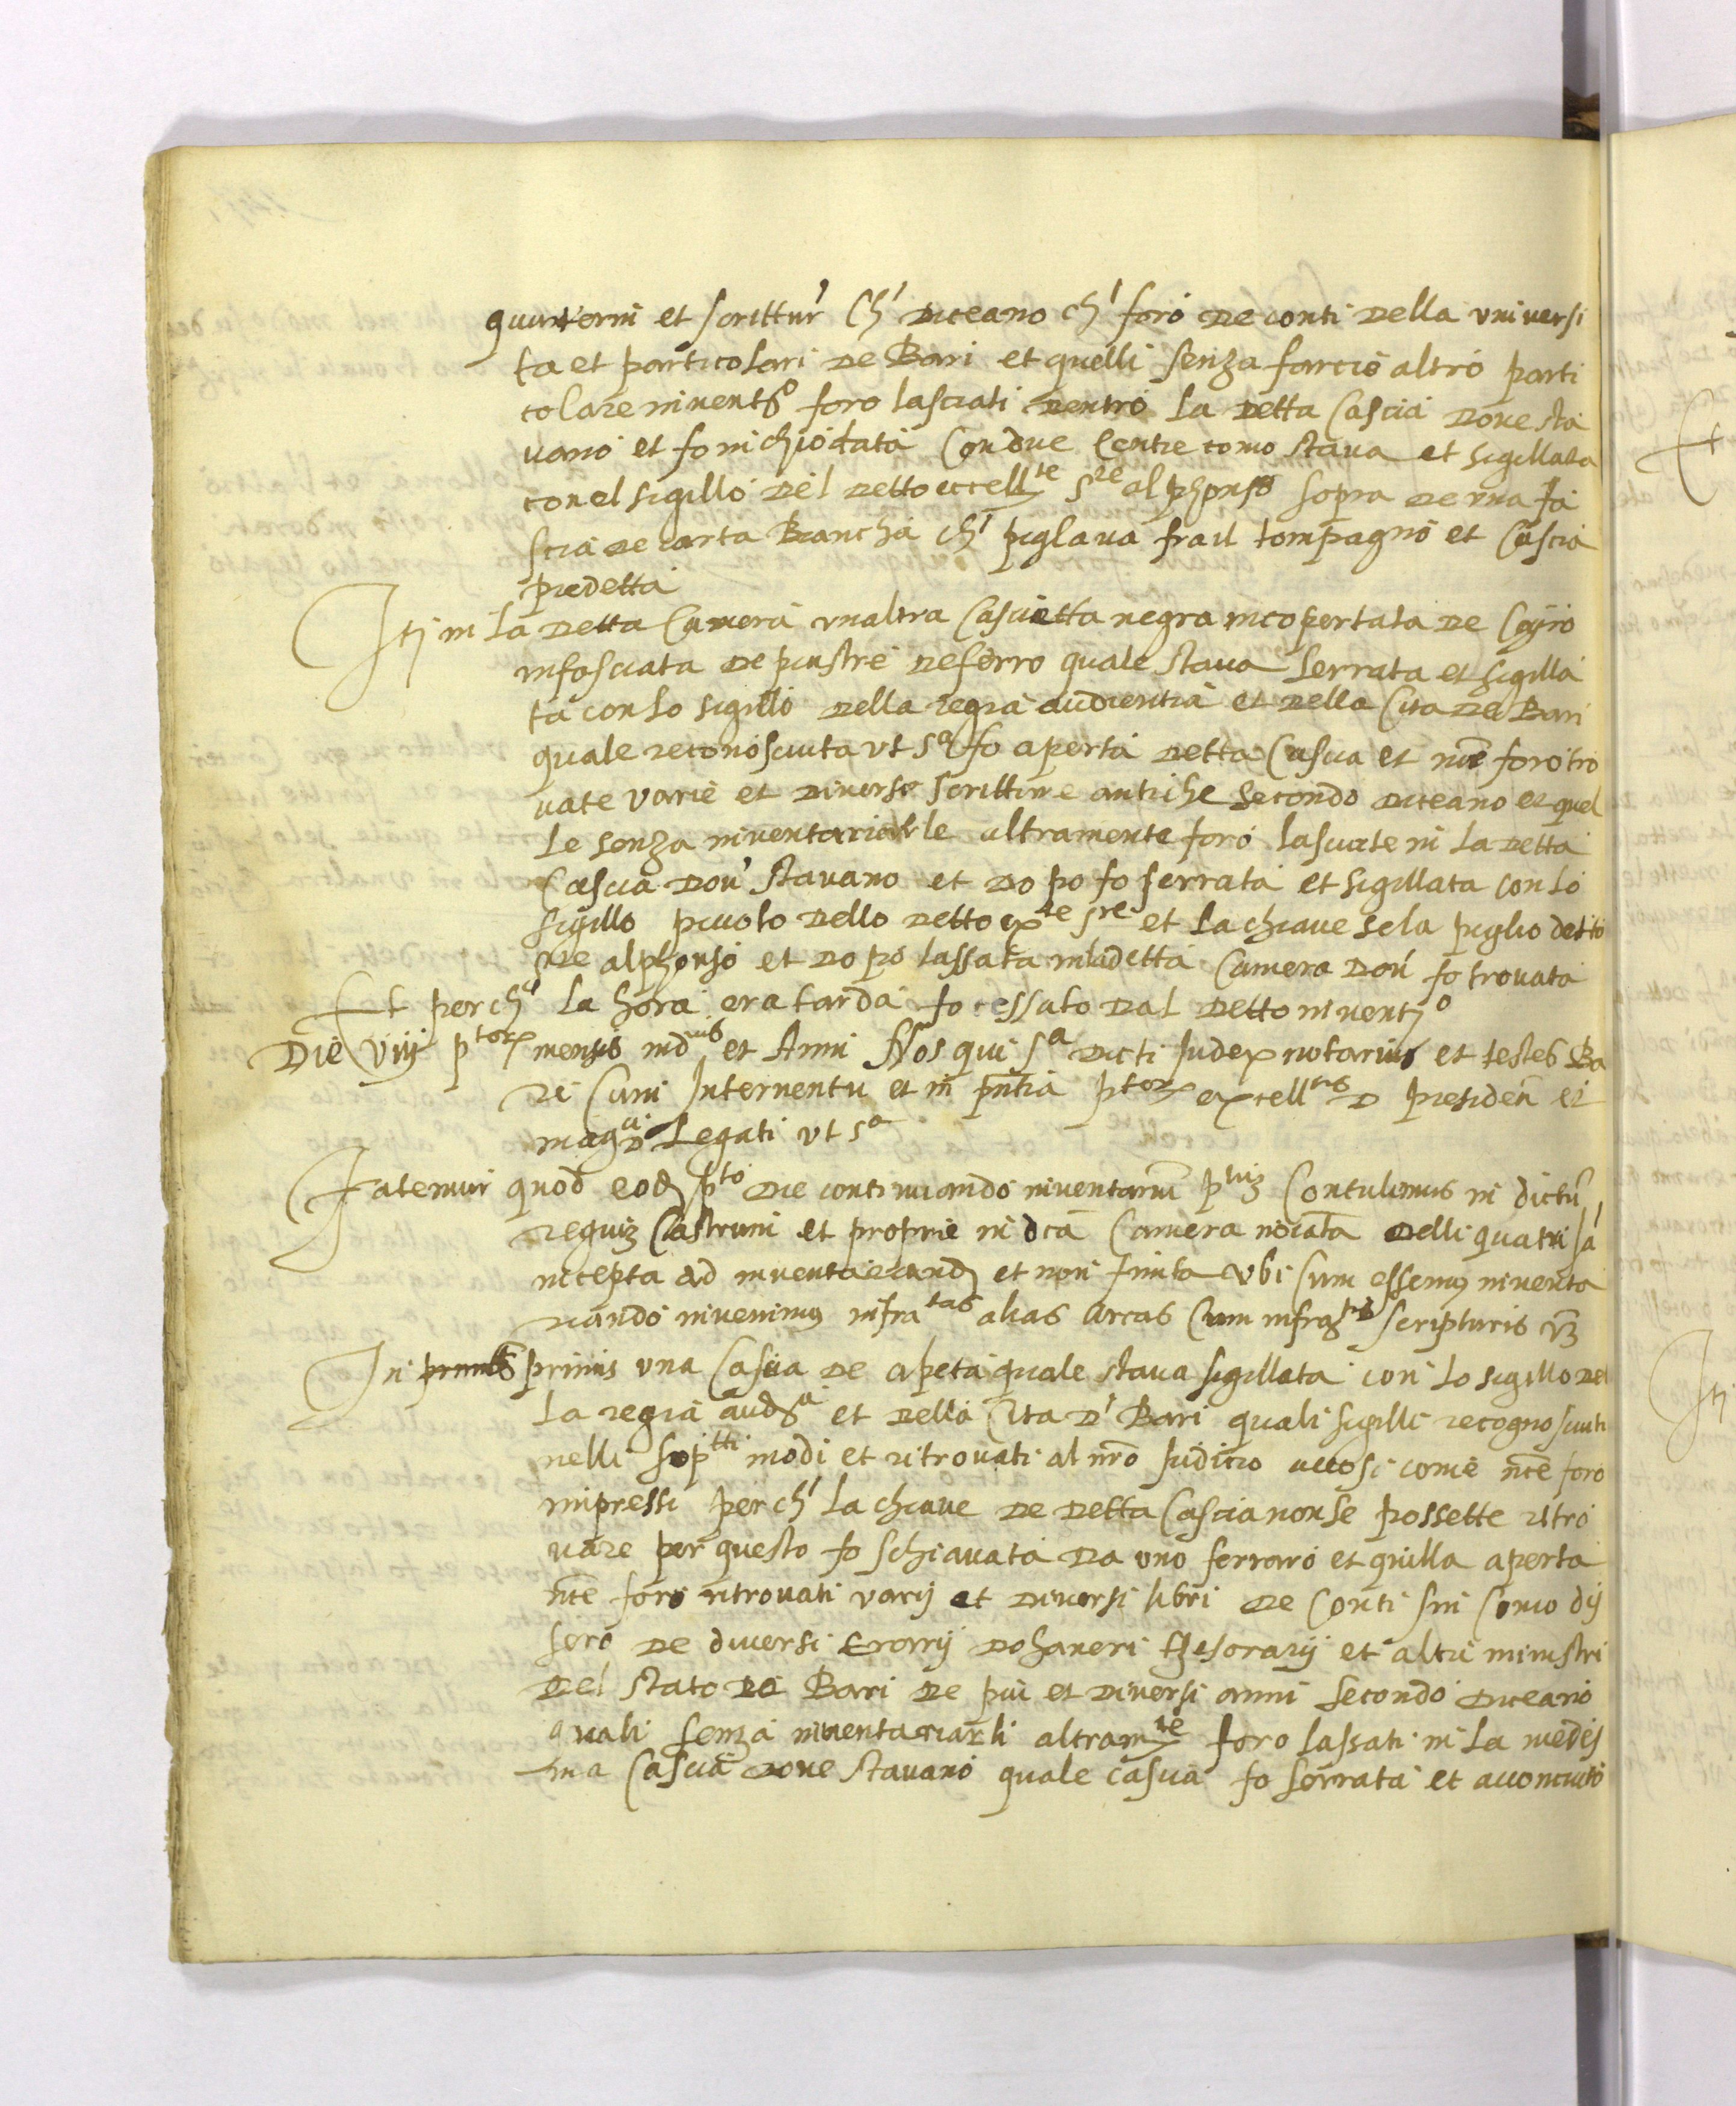 quinterni et scrittur' ch' diceano ch' foro de conti della universi
ta et particolari de Bari et quelli senza farcio altro parti
colare invent.º foro lasciati dentro la detta cascia dove sta
vano et fo inchiodata con due centre como stava et sigillata
con el sigillo del detto eccell.te s.re alphonso sopra de una fa
scia de carta biancha ch' piglava fra il tompagno et cascia
predetta
It in la detta camera unaltra cascietta negra incopertata de coyro
infasciata de piastre de ferro quale stava serrata et sigilla
ta con lo sigillo della regia audientia et della Cita de Bari
quale reconosciuta ut s.a fo aperta detta cascia et nce foro tro
vate varie et diverse scritture antiche secondo diceano et quel
le senza inventariarle altramente foro lasciate in la detta
cascia dov' stavano et dopo fo serrata et sigillata con lo
sigillo picciolo dello detto ex.te s.re et la chiave se la piglio detto
s.re alphonso et dopo lassata in la detta camera dov' fo trovata
Et perch' la hora era tarda fo cessato dal detto invent.º
Die viij p.tor mensis ind.nis et Anni Nos qui s.a dicti Judex notarius et testes Ba
ri cum interventu et in pntia p.tor excell.tis D presiden et
mag.ci D Legati ut s.a
Fatemur quod eod p.to die continuando inventarium p.tum contulimus in dictu
regium Castrum et proprie in dca camera noiata delli quatri ia
incepta ad inventariand et non finita ubi cum essemus inventa
riando invenimus infra.tas alias arcas cum infra.tis scripturis vz
In primis primis una cascia de apeta quale stava sigillata con lo sigillo del
la regia aud.a et della Cita d' Bari quali sigilli recognosciuti
nelli sop.tti modi et ritrovati al nro Judicio accosi come nce foro
impressi perch' la chiave de detta cascia non se possette ritro
vare per questo fo schiavata da uno ferraro et quilla aperta
nce foro ritrovati varij et diversi libri de conti sin como dis
sero de diversi Erarij dohaneri thesorarij et altri ministri
del stato de Bari de piu et diversi anni secondo diceano
quali senza inventariarli altram.te foro lassati in la medes
ma cascia dove stavano quale cascia fo serrata et acconciato